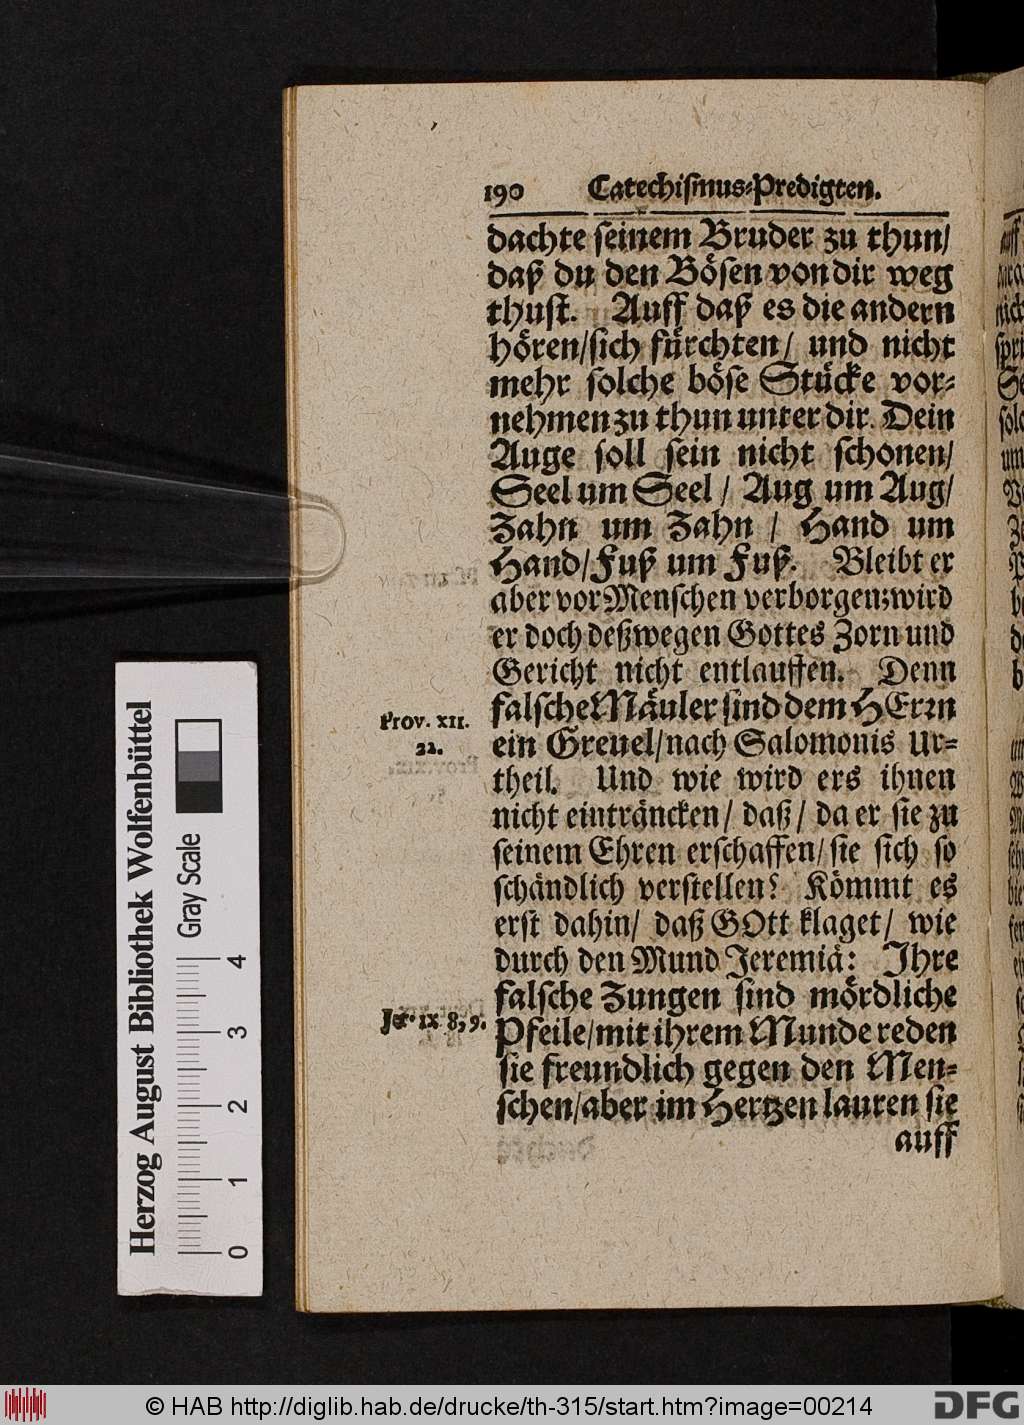 190 Catechismus-Predigten.
dachte seinem Bruder zu thun/
daß du den Bösen von dir weg
thust. Auff daß es die andern
hören/sich fürchten/ und nicht
mehr solche böse Stücke vor-
nehmen zu thun unter dir. Dein
Auge soll sein nicht schonen/
Seel um Seel / Aug um Aug/
Zahn um Zahn / Hand um
Hand/Fuß um Fuß. Bleibt er
aber vor Menschen verborgen; wird
er doch deßwegen Gottes Zorn und
Gericht nicht entlauffen. Denn
falsche Mäuler sind dem HErrn
ein Greuel/nach Salomonis Ur-
theil. Und wie wird ers ihnen
nicht eintråncken/ daß/ da er sie zu
seinem Ehren erschaffen/sie sich so
schåndlich verstellen? Kömmt es
erst dahin/ daß GOtt klaget/ wie
durch den Mund Jeremiä: Ihre
falsche Zungen sind mördliche
Pfeile/mit ihrem Munde reden
sie freundlich gegen den Men-
schen/aber im Hertzen lauren sie
auff
Prov. XII.
22.
Jer. IX 8, 9.
Herzog August Bibliothek Wolfenbüttel
Gray Scale
0 1 2 3 4
© HAB http://diglib.hab.de/drucke/th-315/start.htm?image=00214
DFG